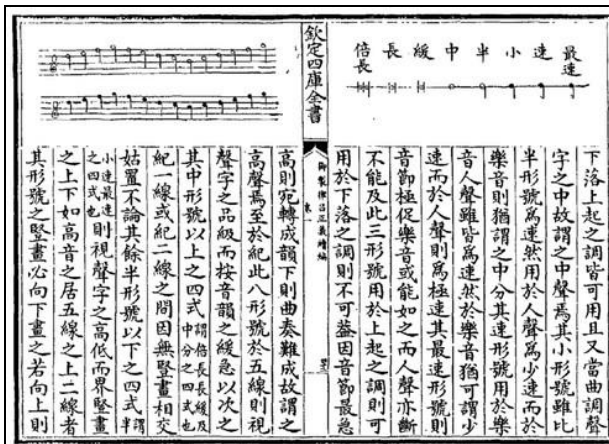 最速
速
小
半
中
緩
長
倍長
下落上起之調皆可用且又當曲調聲
字之中故謂之中聲焉其小形號雖比
半形號爲速然用於人聲爲少速而於
樂音則猶謂之中分其速形號用於樂
音人聲雖皆爲速然於樂音猶可謂少
速而於人聲則爲極速其最速形號則
音節極促樂音或能如之而人聲亦斷
不能及此三形號用於上起之調則可
用於下落之調則不可葢因音節最急
欽定四庫全書
御製律呂正義續編
卷一
高則宛轉成韻下則曲奏難成故謂之
高聲焉至於紀此八形號於五線則視
聲字之品級而按音韻之緩急以次之
其中形號以上之四式謂倍長長緩及中分之四式也
紀一線或紀二線之間因無豎畫相交
姑置不論其餘半形號以下之四式謂半
小速最速之四式也則視聲字之高低而界豎畫
之上下如高音之居五線之上二線者
其形號之豎畫必向下畫之若向上則